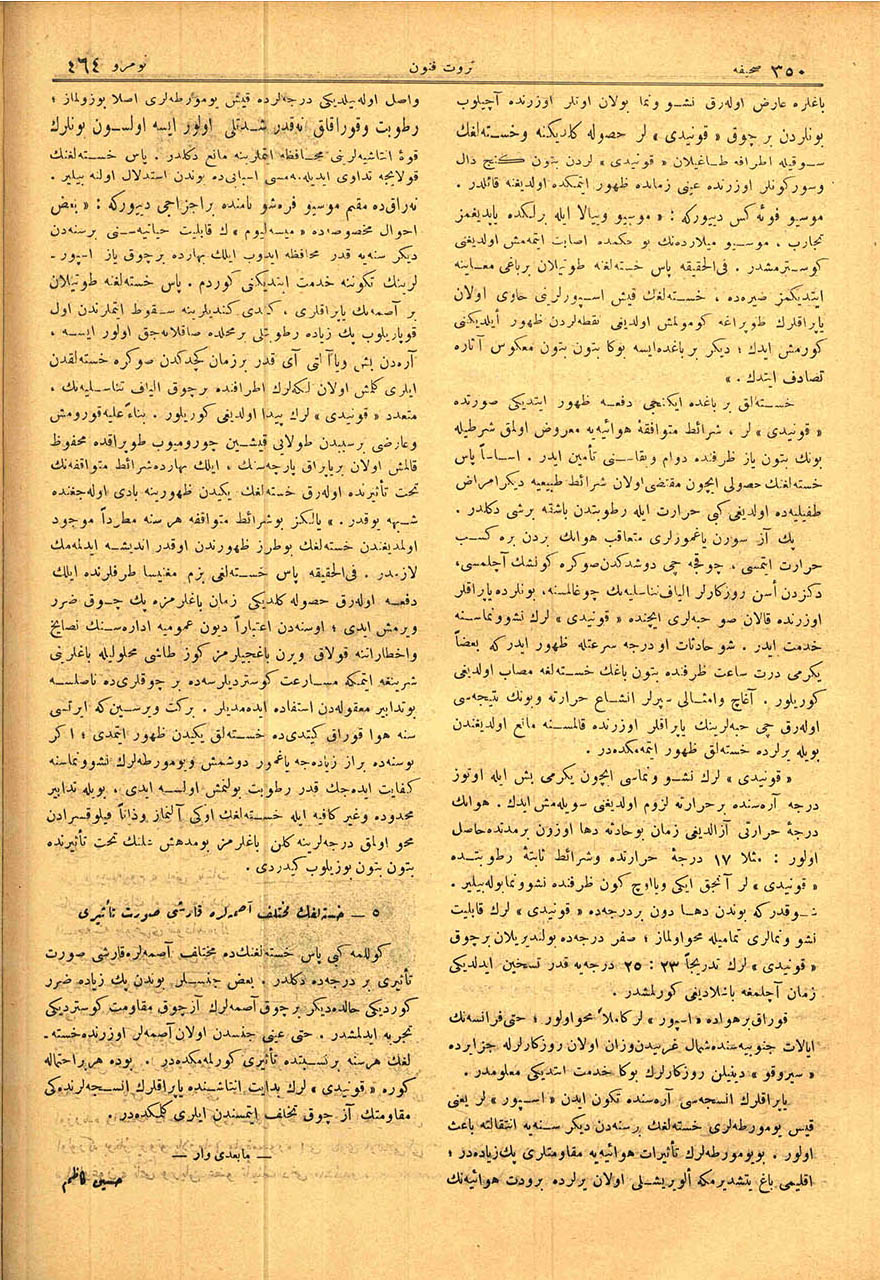 صحیفه ٣٥٠
ثروت فنون
نومرو ٤٦٤
باغلره عارض اوله‌رق نشو ونما بولان اونلر اوزرنده آچیلوب
بونلردن بر چوق « قونیدی » لر حصوله کلدیکنه وخسته‌لغك
سوقیله اطرافه طاغیلان « قونیدی » لردن بتون کنج دال
وسورکونلر اوزرنده عینی زمانده ظهور ایتمکده اولدیغنه قائلدر .
موسیو فوئه‌کس دییورکه : « موسیو وییالا ایله برلکده یاپدیغمز
تجارب ، موسیو میلارده‌نك بو حکمده اصابت ایتمه‌مش اولدیغنی
کوسترمشدر . فی‌الحقیقه پاس خسته‌لغنه طوتیلان بر باغی معاینه
ایتدیکمز صیره‌ده ، خسته‌لغك قیش اسپورلرینی حاوی اولان
یاپراقلرك طوپراغه کومولمش اولدیغی نقطه‌لردن ظهور ایلدیکنی
کورمش ایدك ؛ دیکر بر باغده‌ایسه بوکا بتون بتون معکوس آثاره
تصادف ایتدك . »
خسته‌لق بر باغده ایکنجی دفعه ظهور ایتدیکی صورتده
« قونیدی » لر ، شرائط متوافقهٔ هوائیه‌یه معروض اولمق شرطیله
بونك بتون یاز ظرفنده دوام وبقاسنی تأمین ایدر . اساساً پاس
خسته‌لغنك حصولی ایچون مقتضی‌اولان شرائط طبیعیه دیکر امراض
طفیلیه‌ده اولدیغی کبی حرارت ایله رطوبتدن باشقه برشی دکلدر .
پك آز سورن یاغمورلری متعاقب هوانك بردن بره کسب
حرارت ایتمسی ، چوقجه چی دوشدکدن‌صوکره کونشك آچلمسی،
دکزدن أسن روزکارلر الیاف‌تناسلیه‌نك چوغالمسنه، بونلرده‌یاپراقلر
اوزرنده قالان صو حبه‌لری ایچنده « قونیدی » لرك نشوونماسنه
خدمت ایدر . شو حادثات او درجه سرعتله ظهور ایدرکه بعضاً
یکرمی درت ساعت ظرفنده بتون باغك خسته‌لغه مصاب اولدیغی
کوریلور . آغاج وامثالی سپرلر انشعاع حرارته وبونك نتیجه‌سی
اوله‌رق چی حبه‌لرینك یاپراقلر اوزرنده قالمسنه مانع اولدیغندن
بویله یرلرده خسته‌لق ظهور ایتمه‌مکده‌در .
« قونیدی » لرك نشو ونماسی ایچون یکرمی بش ایله اوتوز
درجه آره‌سنده بر حرارته لزوم اولدیغی سویله‌مش ایدك . هوانك
درجهٔ حرارتی آزالدیغی زمان بوحادثه دها اوزون بر مدتده‌حاصل
اولور : مثلا ١٧ درجهٔ حرارتده وشرائط ثابتهٔ رطوبتده
« قونیدی » لر آنجق ایکی ویااوچ کون ظرفنده نشوونمابوله‌بیلیر .
شوقدرکه بوندن دها دون بر درجه‌ده « قونیدی » لرك قابلیت
نشو ونمالری تمامیله محواولماز ؛ صفر درجه‌ده بولندیریلان برچوق
« قونیدی » لرك تدریجاً ٢٣ : ٢٥ درجه‌یه قدر تسخین ایدلدیکی
زمان آچلمغه باشلادیغی کورلمشدر .
قوراق‌برهواده « اسپور » لر کاملاً محواولور ؛ حتی‌فرانسه‌نك
ایالات جنوبیه‌سنده‌شمال غربیدن‌وزان اولان روزکارلرله جزایرده
« سیروقو » دینیلن روزکارلرك بوکا خدمت ایتدیکی معلومدر .
یاپراقلرك انسجه‌سی آره‌سنده تکون ایدن « اسپور » لر یعنی
قیش یومورطه‌لری خسته‌لغك برسنه‌دن دیکر سنه‌یه انتقالنه باعث
اولور . بویومورطه‌لرك تأثیرات هوائیه‌یه مقاومتلری پك‌زیاده‌در ؛
اقلیمی باغ یتشدیرمکه ألویریشلی اولان یرلرده برودت هوائیه‌نك
واصل اوله‌بیلدیکی درجه‌لرده قیش یومورطه‌لری اصلا بوزولماز ؛
رطوبت وقوراقلق نه‌قدر شدتلی اولور ایسه اولسون بونلرك
قوهٔ انتاشیه‌لرینی محافظه ایتملرینه مانع دکلدر . پاس خسته‌لغنك
قولایجه تداوی ایدیله‌مه‌مسی اسبابی‌ده بوندن استدلال اولنه بیلیر .
نه‌راق‌ده مقیم موسیو فره‌شو نامنده براجزاجی دییورکه : « بعض
احوال مخصوصه‌ده « میسه‌لیوم » ك قابلیت حیاتیه‌سنی برسنه‌دن
دیکر سنه‌یه قدر محافظه ایدوب ایلك بهارده برچوق یاز اسپور-
لرینك تکوننه خدمت ایتدیکنی کوردم . پاس خسته‌لغنه طوتیلان
بر آصمه‌نك یاپراقلری ، کندی کندیلرینه سقوط ایتملرندن اول
قوپاریلوب پك زیاده رطوبتلی برمحلده صاقلانه‌جق اولور ایسه ،
آره‌دن بش ویاآلتی آی قدر برزمان کچدکدن صوکره خسته‌لقدن
ایلری کلمش اولان لکه‌لرك اطرافنده برچوق الیاف تناسلیه‌نك ،
متعدد « قونیدی » لرك پیدا اولدیغی کوریلور . بناءً علیه‌قورومش
وعارضی برسببدن طولایی قیشین چورومیوب طوپراقده محفوظ
قالمش اولان بریاپراق پارچه‌سنك ، ایلك بهارده‌شرائط متوافقه‌نك
تحت تأثیرنده اوله‌رق خسته‌لغك یکیدن ظهورینه بادی اوله‌جغنده
شبهه یوقدر . » یالکز بوشرائط متوافقه هر سنه مطرداً موجود
اولمدیغندن خسته‌لغك بوطرز ظهورندن اوقدر اندیشه ایدلمه‌مك
لازمدر . فی‌الحقیقه پاس خسته‌لغی بزم مغنیسا طرفلرنده ایلك
دفعه اوله‌رق حصوله کلدیکی زمان باغلرمزه پك چوق ضرر
ویرمش ایدی ؛ اوسنه‌دن اعتباراً دیون عمومیه اداره‌سنك نصایح
واخطاراتنه قولاق ویرن باغجیلرمز کوز طاشی محلولیله باغلرینی
شرینغه ایتمکه مسارعت کوستردیلرسه‌ده بر چوقلری‌ده ناصلسه
بوتدابیر معقوله‌دن استفاده ایده‌مدیلر . برکت ویرسین‌که ایرتسی
سنه هوا قوراق کیتدی‌ده خسته‌لق یکیدن ظهور ایتمدی ؛ اکر
بوسنه‌ده براز زیاده‌جه یاغمور دوشمش ویومورطه‌لرك نشوونماسنه
کفایت ایده‌جك قدر رطوبت بولنمش اولسه ایدی ، بویله تدابیر
محدوده وغیر کافیه ایله خسته‌لغك اوکی آلنماز وذاتاً فیلوقسرادن
محو اولمق درجه‌لرینه کلن باغلرمز بومدهش علتك تحت تأثیرنده
بتون بتون بوزیلوب کیدردی .
٥ — خسته‌لغك مختلف آصمه‌لره قارشی صورت تأثیری
کوللمه کبی پاس خسته‌لغنك‌ده مختلف آصمه‌لره‌قارشی صورت
تأثیری بر درجه‌ده دکلدر . بعض جنسلر بوندن پك زیاده ضرر
کوردیکی حالده‌دیکر برچوق آصمه‌لرك آزچوق مقاومت کوستردیکی
تجربه ایدلمشدر . حتی عینی جنسدن اولان آصمه‌لر اوزرنده‌خسته-
لغك هرسنه برنسبتده تأثیری کورلمه‌مکده‌در . بوده هر براحتماله
کوره « قونیدی » لرك بدایت انتاشنده یاپراقلرك انسجه‌لرنده‌کی
مقاومتك آز چوق تخلف ایتمسندن ایلری کلمکده‌در .
— مابعدی وار —
حسین کاظم